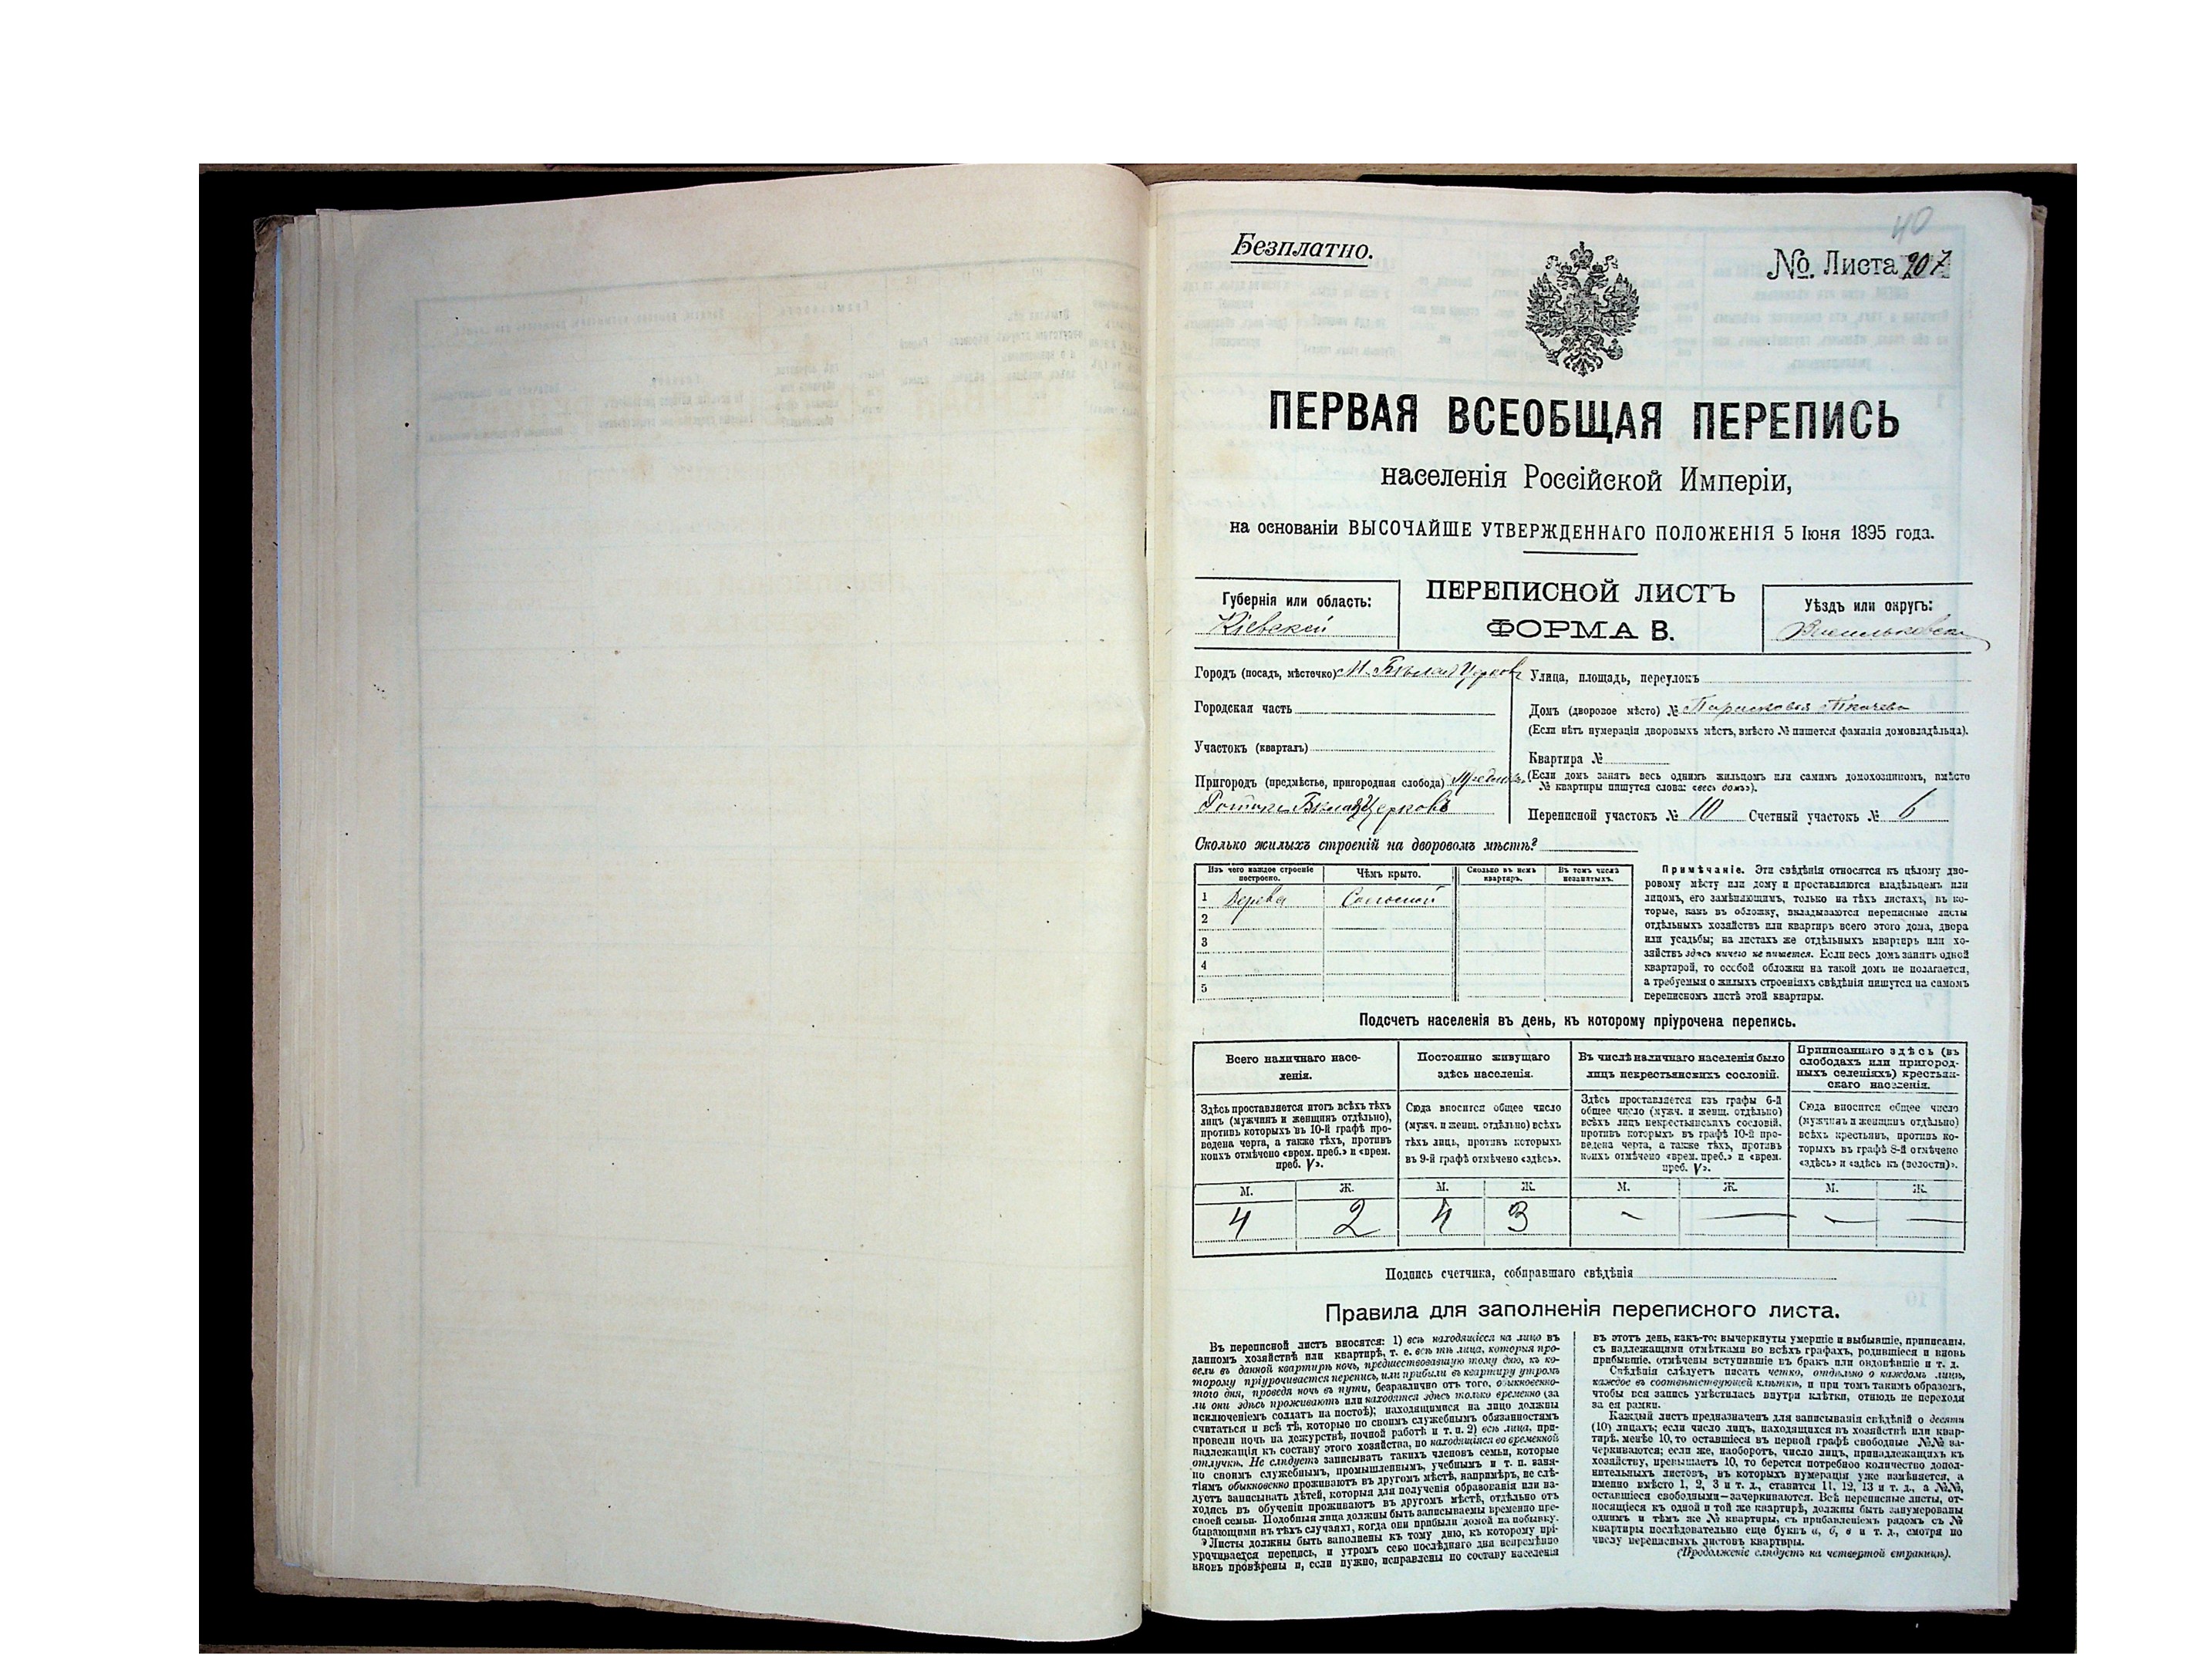 40
Безплатно.
№. Листа 207
ПЕРВАЯ ВСЕОБЩАЯ ПЕРЕПИСЬ
населенія Россійской Имперіи,
на основаніи ВЫСОЧАЙШЕ УТВЕРЖДЕННАГО ПОЛОЖЕНІЯ 5 Іюня 1895 года.
Губернія или область:
Кіевской
ПЕРЕПИСНОЙ ЛИСТЪ
ФОРМА В.
Уѣздъ или округъ:
Васильковск
Городъ (посадъ, мѣстечко) М. Бѣлая Церковь
Городская часть
Участокъ (кварталъ)
Пригородъ (предмѣстье, пригородная слобода)
Бѣлая Церковь
Улица, площадь, переулокъ
Домъ (дворовое мѣсто) № Парасковья Ткачева
(Если нѣтъ нумераціи дворовыхъ мѣстъ, вмѣсто № пишется фамилія домовладѣльца).
Квартира №
(Если домъ занятъ весь однимъ жильцомъ или самимъ домохозяиномъ, вмѣсто
№ квартиры пишутся слова: «весь домъ»).
Переписной участокъ № 10 Счетный участокъ № 6
Сколько жилыхъ строеній на дворовомъ мѣстѣ?
Изъ чего каждое строеніе построено.
Чѣмъ крыто.
Сколько въ немъ квартиръ.
Въ томъ числѣ незанятыхъ.
1 Дерева Соломой
2
3
4
5
Примѣчаніе. Эти свѣдѣнія относятся къ цѣлому дво-
ровому мѣсту или дому и проставляются владѣльцемъ или
лицомъ, его замѣняющимъ, только на тѣхъ листахъ, въ ко-
торые, какъ въ обложку, вкладываются переписные листы
отдѣльныхъ хозяйствъ или квартиръ всего этого дома, двора
или усадьбы; на листахъ же отдѣльныхъ квартиръ или хо-
зяйствъ здѣсь ничего не пишется. Если весь домъ занятъ одной
квартирой, то особой обложки на такой домъ не полагается,
а требуемыя о жилыхъ строеніяхъ свѣдѣнія пишутся на самомъ
переписномъ листѣ этой квартиры.
Подсчетъ населенія въ день, къ которому пріурочена перепись.
Всего наличнаго насе-
ленія.
Здѣсь проставляется итогъ всѣхъ тѣхъ
лицъ (мужчинъ и женщинъ отдѣльно),
противъ которыхъ въ 10-й графѣ про-
ведена черта, а также тѣхъ, противъ
коихъ отмѣчено «врем. преб.» и «врем.
преб. V».
Постоянно живущаго
здѣсь населенія.
Сюда вносится общее число
(мужч. и женщ. отдѣльно) всѣхъ
тѣхъ лицъ, противъ которыхъ
въ 9-й графѣ отмѣчено «здѣсь».
Въ числѣ наличнаго населенія было
лицъ некрестьянскихъ сословій.
Здѣсь проставляется изъ графы 6-й
общее число (мужч. и женщ. отдѣльно)
всѣхъ лицъ некрестьянскихъ сословій,
противъ которыхъ въ графѣ 10-й про-
ведена черта, а также тѣхъ, противъ
коихъ отмѣчено «врем. преб.» и «врем.
преб. V».
Приписаннаго здѣсь (въ
слободахъ или пригород-
ныхъ селеніяхъ) крестьян-
скаго населенія.
Сюда вносится общее число
(мужчинъ и женщинъ отдѣльно)
всѣхъ крестьянъ, противъ ко-
торыхъ въ графѣ 8-й отмѣчено
«здѣсь» и «здѣсь къ (волости)».
М. Ж. М. Ж. М. Ж. М. Ж.
4 2 4 3 - — — —
Подпись счетчика, собиравшаго свѣдѣнія
Правила для заполненія переписного листа.
Въ переписной листъ вносятся: 1) всѣ находящіеся на лицо въ
данномъ хозяйствѣ или квартирѣ, т. е. всѣ тѣ лица, которыя про-
вели въ данной квартирѣ ночь, предшествовавшую тому дню, къ ко-
торому пріурочивается перепись, или прибыли въ квартиру утромъ
того дня, проведя ночь въ пути, безразлично отъ того, обыкновенно-
ли они здѣсь проживаютъ или находятся здѣсь только временно (за
исключеніемъ солдатъ на постоѣ); находящимися на лицо должны
считаться и всѣ тѣ, которые по своимъ служебнымъ обязанностямъ
провели ночь на дежурствѣ, ночной работѣ и т. п. 2) всѣ лица, при-
надлежащія къ составу этого хозяйства, но находящіяся во временной
отлучкѣ. Не слѣдуетъ записывать такихъ членовъ семьи, которые
по своимъ служебнымъ, промышленнымъ, учебнымъ и т. п. заня-
тіямъ обыкновенно проживаютъ въ другомъ мѣстѣ, напримѣръ, не слѣ-
дуетъ записывать дѣтей, которыя для полученія образованія или на-
ходясь въ обученіи проживаютъ въ другомъ мѣстѣ, отдѣльно отъ
своей семьи. Подобныя лица должны быть записываемы временно пре-
бывающими въ тѣхъ случаяхъ, когда они прибыли домой на побывку.
Листы должны быть заполнены къ тому дню, къ которому прі-
урочивается перепись, и утромъ сего послѣдняго дня непремѣнно
вновь провѣрены и, если нужно, исправлены по составу населенія
въ этотъ день, какъ-то: вычеркнуты умершіе и выбывшіе, приписаны,
съ надлежащими отмѣтками во всѣхъ графахъ, родившіеся и вновь
прибывшіе, отмѣчены вступившіе въ бракъ или овдовѣвшіе и т. д.
Свѣдѣнія слѣдуетъ писать четко, отдѣльно о каждомъ лицѣ,
каждое въ соотвѣтствующей клѣткѣ, и при томъ такимъ образомъ,
чтобы вся запись умѣстилась внутри клѣтки, отнюдь не переходя
за ея рамки.
Каждый листъ предназначенъ для записыванія свѣдѣній о десяти
(10) лицахъ; если число лицъ, находящихся въ хозяйствѣ или квар-
тирѣ, менѣе 10, то оставшіеся въ первой графѣ свободные №№ за-
черкиваются; если же, наоборотъ, число лицъ, принадлежащихъ къ
хозяйству, превышаетъ 10, то берется потребное количество допол-
нительныхъ листовъ, въ которыхъ нумерація уже измѣняется, а
именно вмѣсто 1, 2, 3 и т. д., ставится 11, 12, 13 и т. д., а №№,
оставшіеся свободными—зачеркиваются. Всѣ переписные листы, от-
носящіеся къ одной и той же квартирѣ, должны быть занумерованы
однимъ и тѣмъ же № квартиры, съ прибавленіемъ рядомъ съ №
квартиры послѣдовательно еще буквъ а, б, в и т. д., смотря по
числу переписныхъ листовъ квартиры.
(Продолженіе слѣдуетъ на четвертой страницѣ).